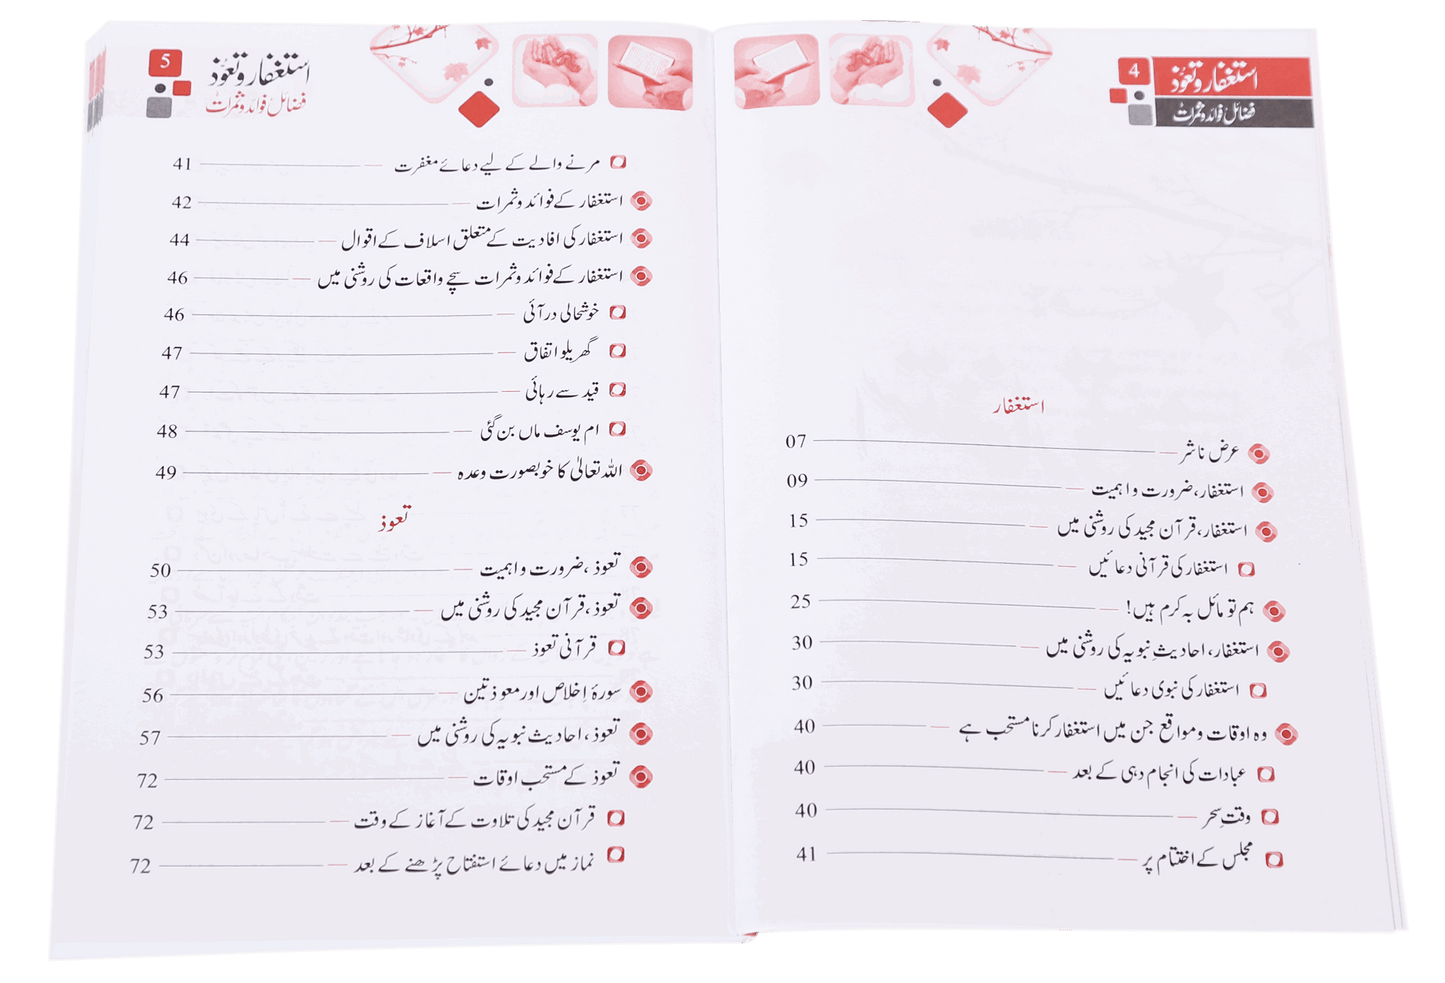 4
استغفار و تعوّذ
فضائل فوائد و ثمرات
استغفار
عرض ناشر 07
استغفار، ضرورت و اہمیت 09
استغفار، قرآن مجید کی روشنی میں 15
استغفار کی قرآنی دعائیں 15
ہم تو مائل بہ کرم ہیں! 25
استغفار، احادیثِ نبویہ کی روشنی میں 30
استغفار کی نبوی دعائیں 30
وہ اوقات و مواقع جن میں استغفار کرنا مستحب ہے 40
عبادات کی انجام دہی کے بعد 40
وقتِ سحر 40
مجلس کے اختتام پر 41
5
استغفار و تعوّذ
فضائل فوائد و ثمرات
مرنے والے کے لیے دعائے مغفرت 41
استغفار کے فوائد و ثمرات 42
استغفار کی افادیت کے متعلق اسلاف کے اقوال 44
استغفار کے فوائد و ثمرات سچے واقعات کی روشنی میں 46
خوشحالی در آئی 46
گھریلو اتفاق 47
قید سے رہائی 47
ام یوسف ماں بن گئی 48
اللہ تعالیٰ کا خوبصورت وعدہ 49
تعوذ
تعوذ، ضرورت و اہمیت 50
تعوذ، قرآن مجید کی روشنی میں 53
قرآنی تعوذ 53
سورۂ اخلاص اور معوذتین 56
تعوذ، احادیث نبویہ کی روشنی میں 57
تعوذ کے مستحب اوقات 72
قرآن مجید کی تلاوت کے آغاز کے وقت 72
نماز میں دعائے استفتاح پڑھنے کے بعد 72